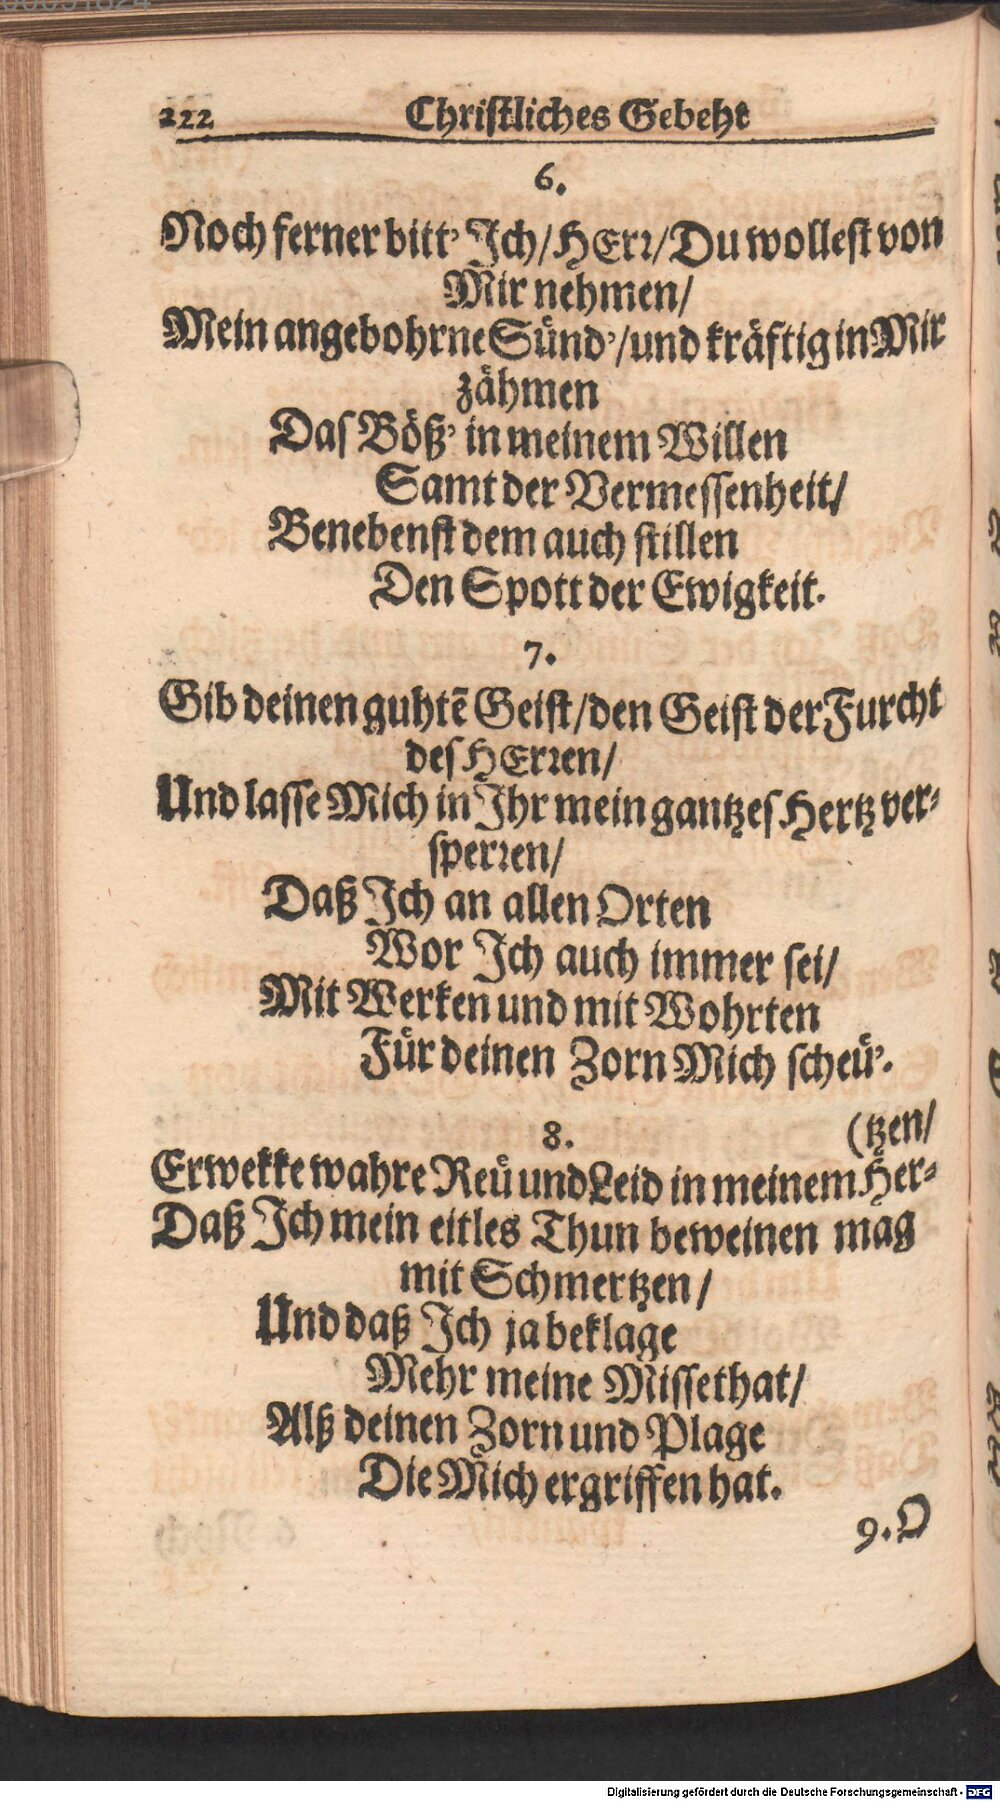 222 Christliches Gebeht
6.
Noch ferner bitt' Ich/HErr/Du wollest von
Mir nehmen/
Mein angebohrne Sünd'/und kräftig in Mir
zähmen
Das Böß' in meinem Willen
Samt der Vermessenheit/
Benebenst dem auch stillen
Den Spott der Ewigkeit.
7.
Gib deinen guhtẽ Geist/den Geist der Furcht
des HErren/
Und lasse Mich in Ihr mein gantzes Hertz ver-
sperren/
Daß Ich an allen Orten
Wor Ich auch immer sei/
Mit Werken und mit Wohrten
Für deinen Zorn Mich scheü'.
8. (tzen/
Erwekke wahre Reü und Leid in meinem Her-
Daß Ich mein eitles Thun beweinen mag
mit Schmertzen/
Und daß Ich ja beklage
Mehr meine Missethat/
Alß deinen Zorn und Plage
Die Mich ergriffen hat.
9. O
Digitalisierung gefördert durch die Deutsche Forschungsgemeinschaft - DFG